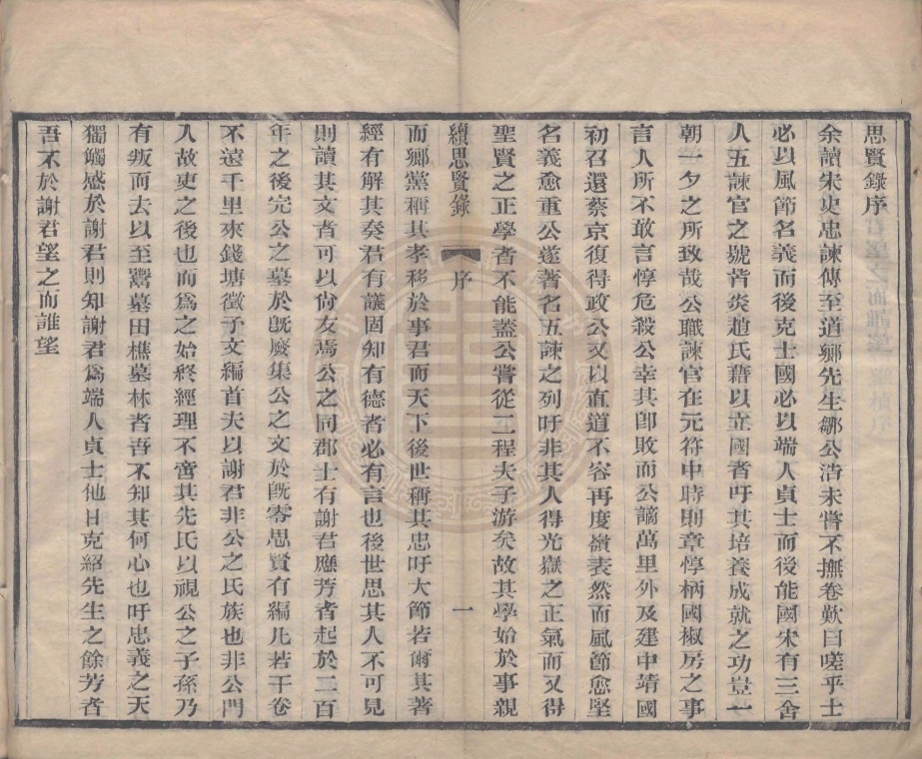 思賢錄序
余讀宋史忠諫傳至道鄉先生鄒公浩未嘗不撫卷歎曰嗟乎士
必以風節名義而後克士國必以端人貞士而後能國宋有三舍
人五諫官之號皆炎趙氏藉以立國者吁其培養成就之功豈一
朝一夕之所致哉公職諫官在元符中時則章惇柄國椒房之事
言人所不敢言惇危殺公幸其卽敗而公謫萬里外及建中靖國
初召還蔡京復得政公又以直道不容再度嶺表然而風節愈堅
名義愈重公遂著名五諫之列吁非其人得光嶽之正氣而又得
聖賢之正學者不能蓋公嘗從二程夫子游矣故其學始於事親
續思賢錄 序 一
而鄉黨稱其孝移於事君而天下後世稱其忠吁大節若爾其著
經有解其奏君有議固知有德者必有言也後世思其人不可見
則讀其文者可以尙友焉公之同郡士有謝君應芳者起於二百
年之後完公之墓於旣廢集公之文於旣零思賢有編凡若干卷
不遠千里來錢塘徵予文編首夫以謝君非公之氏族也非公門
人故吏之後也而爲之始終經理不啻其先氏以視公之子孫乃
有叛而去以至鬻墓田樵墓林者吾不知其何心也吁忠義之天
獨觸感於謝君則知謝君爲端人貞士他日克紹先生之餘芳者
吾不於謝君望之而誰望